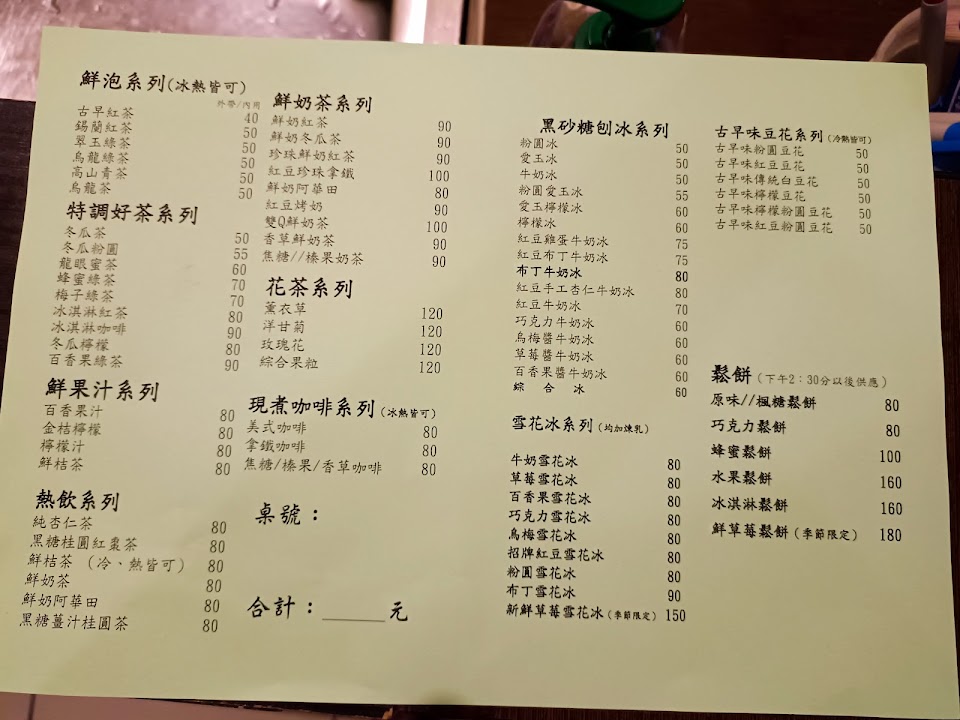 鮮泡系列(冰熱皆可)
外帶/內用
古早紅茶 40
錫蘭紅茶 50
翠玉綠茶 50
烏龍綠茶 50
高山青茶 50
烏龍茶 50
特調好茶系列
冬瓜茶 50
冬瓜粉圓 55
龍眼蜜茶 60
蜂蜜綠茶 70
梅子綠茶 70
冰淇淋紅茶 80
冰淇淋咖啡 90
冬瓜檸檬 80
百香果綠茶 90
鮮果汁系列
百香果汁 80
金桔檸檬 80
檸檬汁 80
鮮桔茶 80
熱飲系列
純杏仁茶 80
黑糖桂圓紅棗茶 80
鮮桔茶 (冷、熱皆可) 80
鮮奶茶 80
鮮奶阿華田 80
黑糖薑汁桂圓茶 80
鮮奶茶系列
鮮奶紅茶 90
鮮奶冬瓜茶 90
珍珠鮮奶紅茶 90
紅豆珍珠拿鐵 100
鮮奶阿華田 80
紅豆烤奶 90
雙Q鮮奶茶 100
香草鮮奶茶 90
焦糖//榛果奶茶 90
花茶系列
薰衣草 120
洋甘菊 120
玫瑰花 120
綜合果粒 120
現煮咖啡系列(冰熱皆可)
美式咖啡 80
拿鐵咖啡 80
焦糖/榛果/香草咖啡 80
桌號：
合計：＿＿＿元
黑砂糖刨冰系列
粉圓冰 50
愛玉冰 50
牛奶冰 50
粉圓愛玉冰 55
愛玉檸檬冰 60
檸檬冰 60
紅豆雞蛋牛奶冰 75
紅豆布丁牛奶冰 75
布丁牛奶冰 80
紅豆手工杏仁牛奶冰 80
紅豆牛奶冰 70
巧克力牛奶冰 60
烏梅醬牛奶冰 60
草莓醬牛奶冰 60
百香果醬牛奶冰 60
綜 合 冰 60
雪花冰系列(均加煉乳)
牛奶雪花冰 80
草莓雪花冰 80
百香果雪花冰 80
巧克力雪花冰 80
烏梅雪花冰 80
招牌紅豆雪花冰 80
粉圓雪花冰 80
布丁雪花冰 90
新鮮草莓雪花冰(季節限定) 150
古早味豆花系列(冷熱皆可)
古早味粉圓豆花 50
古早味紅豆豆花 50
古早味傳統白豆花 50
古早味檸檬豆花 50
古早味檸檬粉圓豆花 50
古早味紅豆粉圓豆花 50
鬆餅(下午2：30分以後供應)
原味//楓糖鬆餅 80
巧克力鬆餅 80
蜂蜜鬆餅 100
水果鬆餅 160
冰淇淋鬆餅 160
鮮草莓鬆餅(季節限定) 180